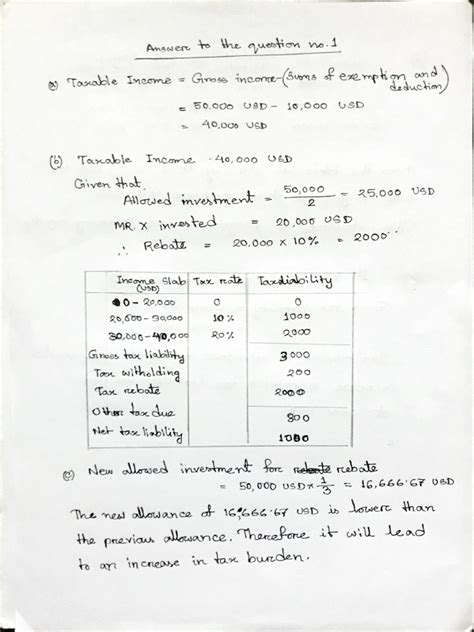 Answer to the question no.1
a) Taxable Income = Gross income-(Sums of exemption and deduction)
= 50,000 USD - 10,000 USD
= 40,000 USD
(b) Taxable Income · 40,000 USD
Given that,
Allowed investment = 50,000 / 2 = 25,000 USD
MR. X invested = 20,000 USD
∴ Rebate = 20,000 × 10% = 2000
Income Slab (USD) Tax rate Tax liability
0 - 20,000 0 0
10% 1000
30,000 - 40,000 20% 2000
Gross tax liability 3000
Tax witholding 200
Tax rebate 2000
Other tax due 800
Net tax liability 1000
(c) New allowed investment for rebate
= 50,000 USD × 1/3 = 16,666.67 USD
The new allowance of 16,666.67 USD is lower than
the previous allowance. Therefore it will lead
to an increase in tax burden.